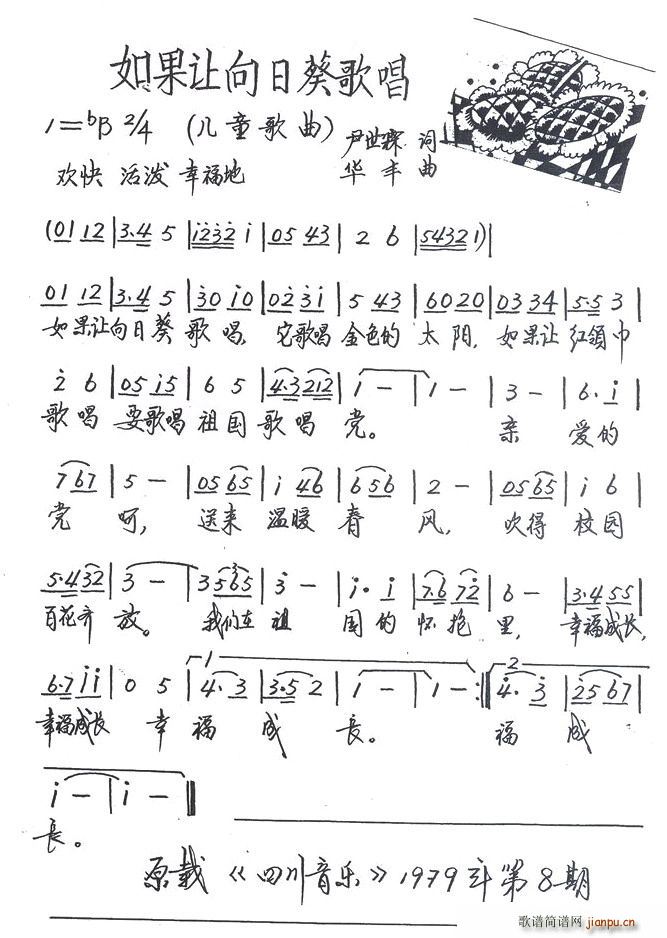 如果让向日葵歌唱
1=♭B 2/4 (儿童歌曲) 尹世霖 词
欢快 活泼 幸福地 华丰 曲
(01 12 | 3·4 5 | i232 i | 05 43 | 2 6 | 5432 1) |
01 12 | 3·4 5 | 30 i0 | 02 3i | 5 43 | 60 20 | 03 34 | 5·5 3 |
如果让向日葵 歌 唱, 它歌唱 金色的 太 阳, 如果让 红领巾
2 6 | 05 i5 | 6 5 | 4·3 212 | i - | i - | 3 - | 6· i |
歌唱 要歌唱 祖国 歌唱 党。 亲 爱的
7 67 | 5 - | 05 65 | i 46 | 6 56 | 2 - | 05 65 | i 6 |
党 呵, 送来 温暖 春 风, 吹得 校园
5·4 32 | 3 - | 35 365 | 3 - | i· i | 7·6 72 | 6 - | 3·4 55 |
百花齐 放。 我们在 祖 国的 怀抱 里, 幸福成长,
6·7 ii | 0 5 | 1 4· 3 | 3·5 2 | i - | i - :‖ 2 4· 3 | 25 67 |
幸福成长 幸 福 成 长。 福 成
i - | i - ‖
长。
原载《四川音乐》1979年第8期
歌谱简谱网
jianpu.cn